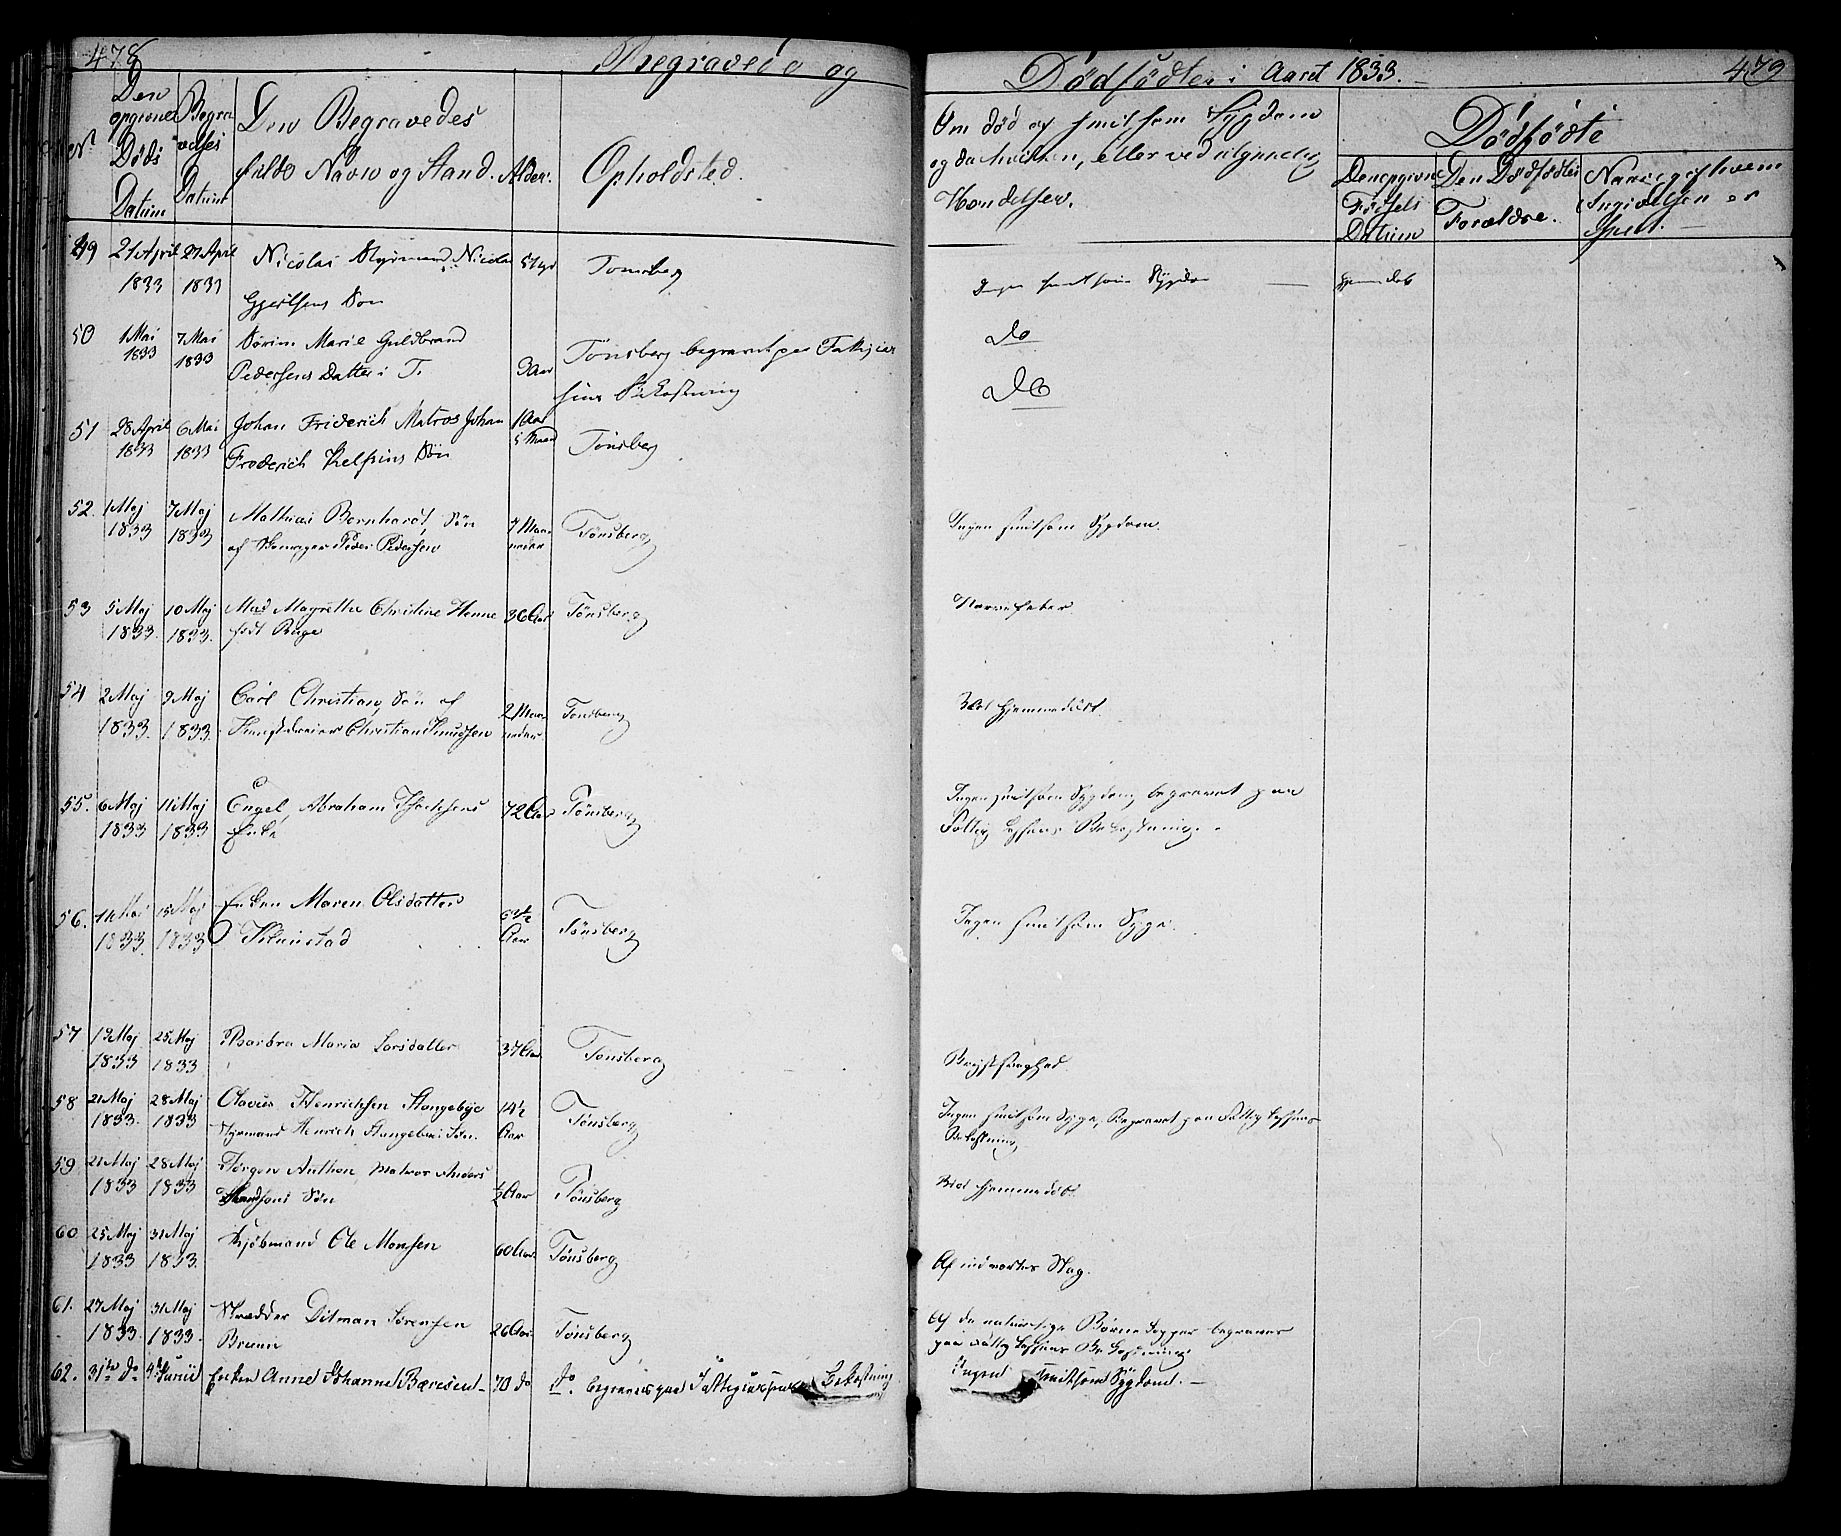 478
Begravede og
Den opgivne Døds Datum
Begravelses Datum
Den Begravedes
fulde Navn og Stand.
Alder.
Opholdsted.
49 21 April 27 April Nicolai Styrmand Nicolai
1833 1833 Søn
Tonsberg
50 1 Mai 7 Mai Marie Guldbrand
1833 1833 Pedersens Datter i T. 3 Aar Tönsberg begravet paa
Bekostning
51 28 April 6 Mai Johan Friderich Matros Johan 1 Aar
1833 1833 Friderich Søn 5 Maan Tönsberg
52. 1 Maj 7 Maj Mathias Bernhard, Søn 7 Maa- Tönsberg
1833 1833 af Peder Pedersen neder
53 5 Maj 10 Maj Mad Magrethe Christine Henne 36 Aar Tönsberg
1833. 1833. født
54 2 Maj 9 Maj Carl Christian, Søn af
1833. 1833. Christian Knudsen 2 Maaneder Tonsberg
55. 6 Maj 11 Maj Engel, Abraham 72 Aar Tönsberg
1833 1833 Enke
56. 15 Maj Enken Maren Olsdatter Tönsberg
1833. 1833 Aar
57 19 Maj 25 Maj Barbra Maria Larsdatter 37 Aar Tonsberg
1833 1833
58 21 Maj 28 Maj Olavus Henrichsen Stangebye 14½ Tönsberg
1833. 1833 Styrmand Henrich Søn. Aar
59 21 Maj 28 Maj Jørgen Anthon Matros Anders
1833 1833 Søn ½ Aar Tönsberg
60 25 Maj 31 Maj Kjøbmand Ole Monsen 60 Aar. Tönsberg
1833 1833.
61. 27 Maj 31 Maj Skrædder Ditman Sørensen
1833. 1833. Bruun 26 Aar. Tönsberg
62. 31te do 4de Junii Enken Anne Johanne 70 do do. begraves paa Bekostning
Dødfødte i Aaret 1833. 479
Om død af smitsom Sygdom
og da hvilken, eller ved ulykkelig
Hændelser.
Dødfødte
Den opgivne Fødsels Datum
Den Dødfødtes Forældre.
Navn af hvem Angivelsen er skeet.
Ingen smitsom Sygdom hjemmedøbt
Do
Do
Ingen smitsom Sygdom.
Nervefeber
Blev hjemmedøbt.
Ingen smitsom Sygdom, begravet paa
Bekostning.
Ingen smitsom Syge.
Brystsvaghed.
Ingen smitsom Syge, Begravet paa
Bekostning
Blev hjemmedøbt.
Af indvortes Slag.
Af de naturlige Børnekopper begraves
paa Bekostning
Ingen smitsom Sygdom.